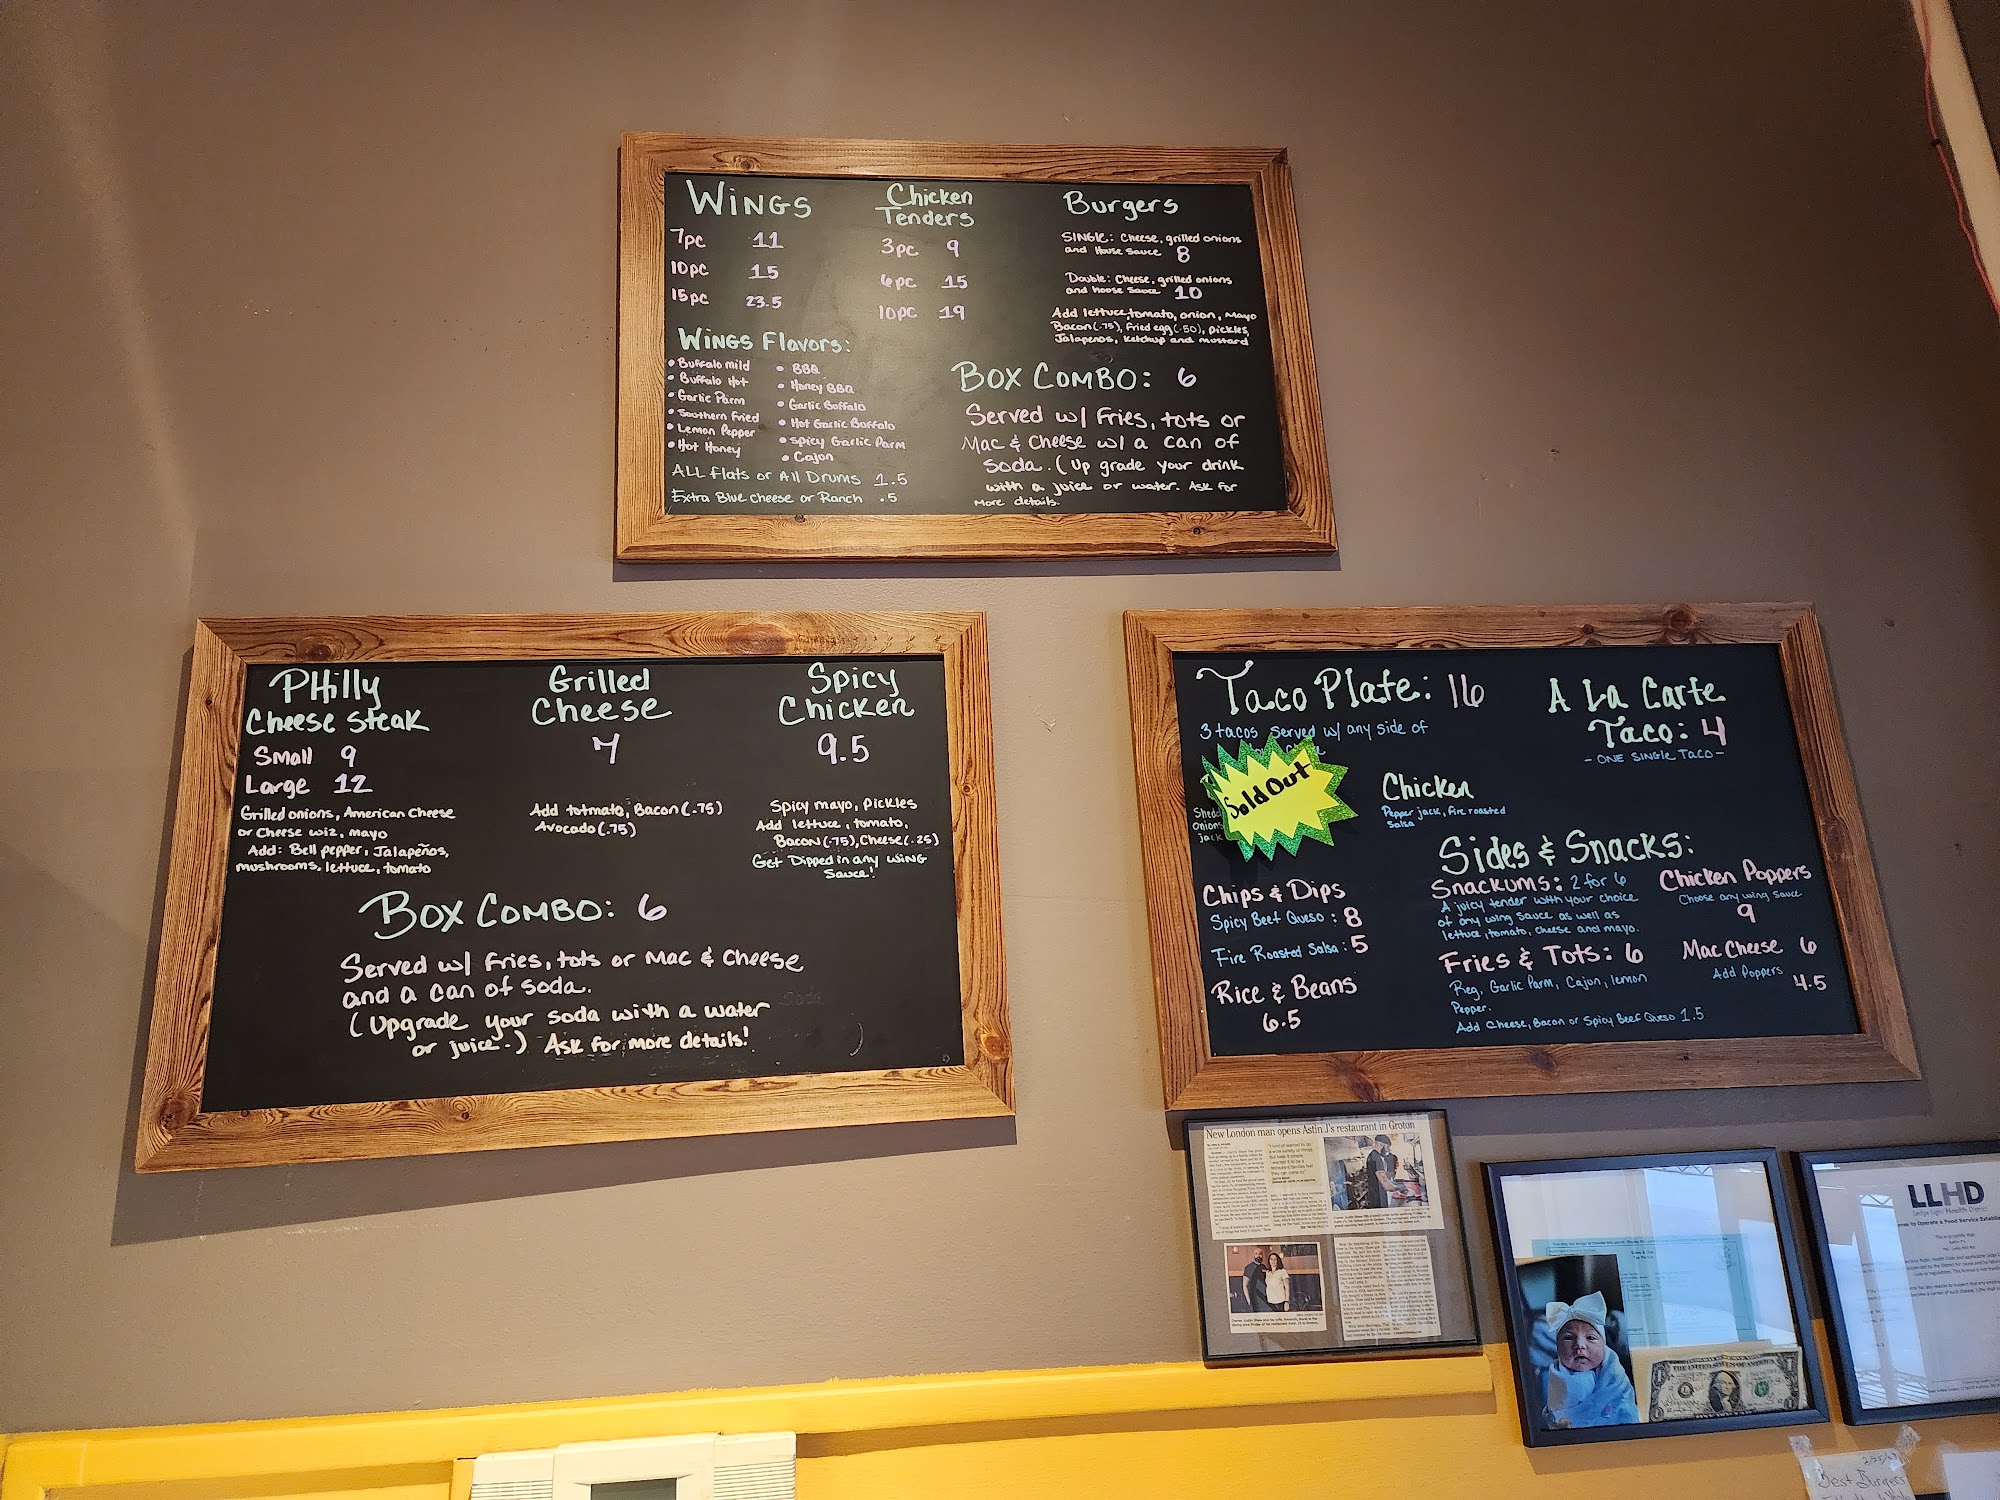 WINGS
7pc 11
10pc 15
15pc 23.5
WINGS Flavors:
• Buffalo mild
• Buffalo Hot
• Garlic Parm
• Southern Fried
• Lemon Pepper
• Hot Honey
• BBQ
• Honey BBQ
• Garlic Buffalo
• Hot Garlic Buffalo
• Spicy Garlic Parm
• Cajon
ALL Flats or All Drums 1.5
Extra Blue cheese or Ranch .5
Chicken
Tenders
3pc 9
6pc 15
10pc 19
Burgers
SINGLE: Cheese, grilled onions
and House sauce 8
Double: Cheese, grilled onions
and house sauce 10
Add lettuce, tomato, onion, Mayo
Bacon (.75), Fried egg (.50), pickles,
Jalapenos, Ketchup and mustard
BOX COMBO: 6
Served w/ Fries, tots or
Mac & Cheese w/ a can of
Soda. (Up grade your drink
with a juice or water. Ask for
More details.
PHilly
Cheese steak
Small 9
Large 12
Grilled onions, American Cheese
or Cheese wiz, mayo
Add: Bell pepper, Jalapeños,
mushrooms, lettuce, tomato
Grilled
Cheese
7
Add totmato, Bacon (.75)
Avocado (.75)
Spicy
Chicken
9.5
Spicy mayo, Pickles
Add lettuce, tomato,
Bacon (.75), Cheese (.25)
Get Dipped in any WING
Sauce!
BOX COMBO: 6
Served w/ Fries, tots or Mac & Cheese
and a can of soda.
(Upgrade your soda with a water
or juice.) Ask for more details!
Taco Plate: 16
3 tacos Served w/ any side of
Sold Out
Shedd
onions
jack
A La Carte
Taco: 4
- ONE SINGLE TACO -
Chicken
Pepper jack, fire roasted
Salsa
Chips & Dips
Spicy Beef Queso: 8
Fire Roasted Salsa: 5
Rice & Beans
6.5
Sides & Snacks:
Snackums: 2 for 6
A juicy tender with your choice
of any wing sauce as well as
lettuce, tomato, cheese and mayo.
Fries & Tots: 6
Reg, Garlic Parm, Cajon, lemon
Pepper.
Add Cheese, Bacon or Spicy Beef Queso 1.5
Chicken Poppers
Choose any wing sauce
9
Mac Cheese 6
Add Poppers
4.5
New London man opens Astin J's restaurant in Groton
LLHD
Ledge Light Health District
THE UNITED STATES OF AMERICA
Best Burgers